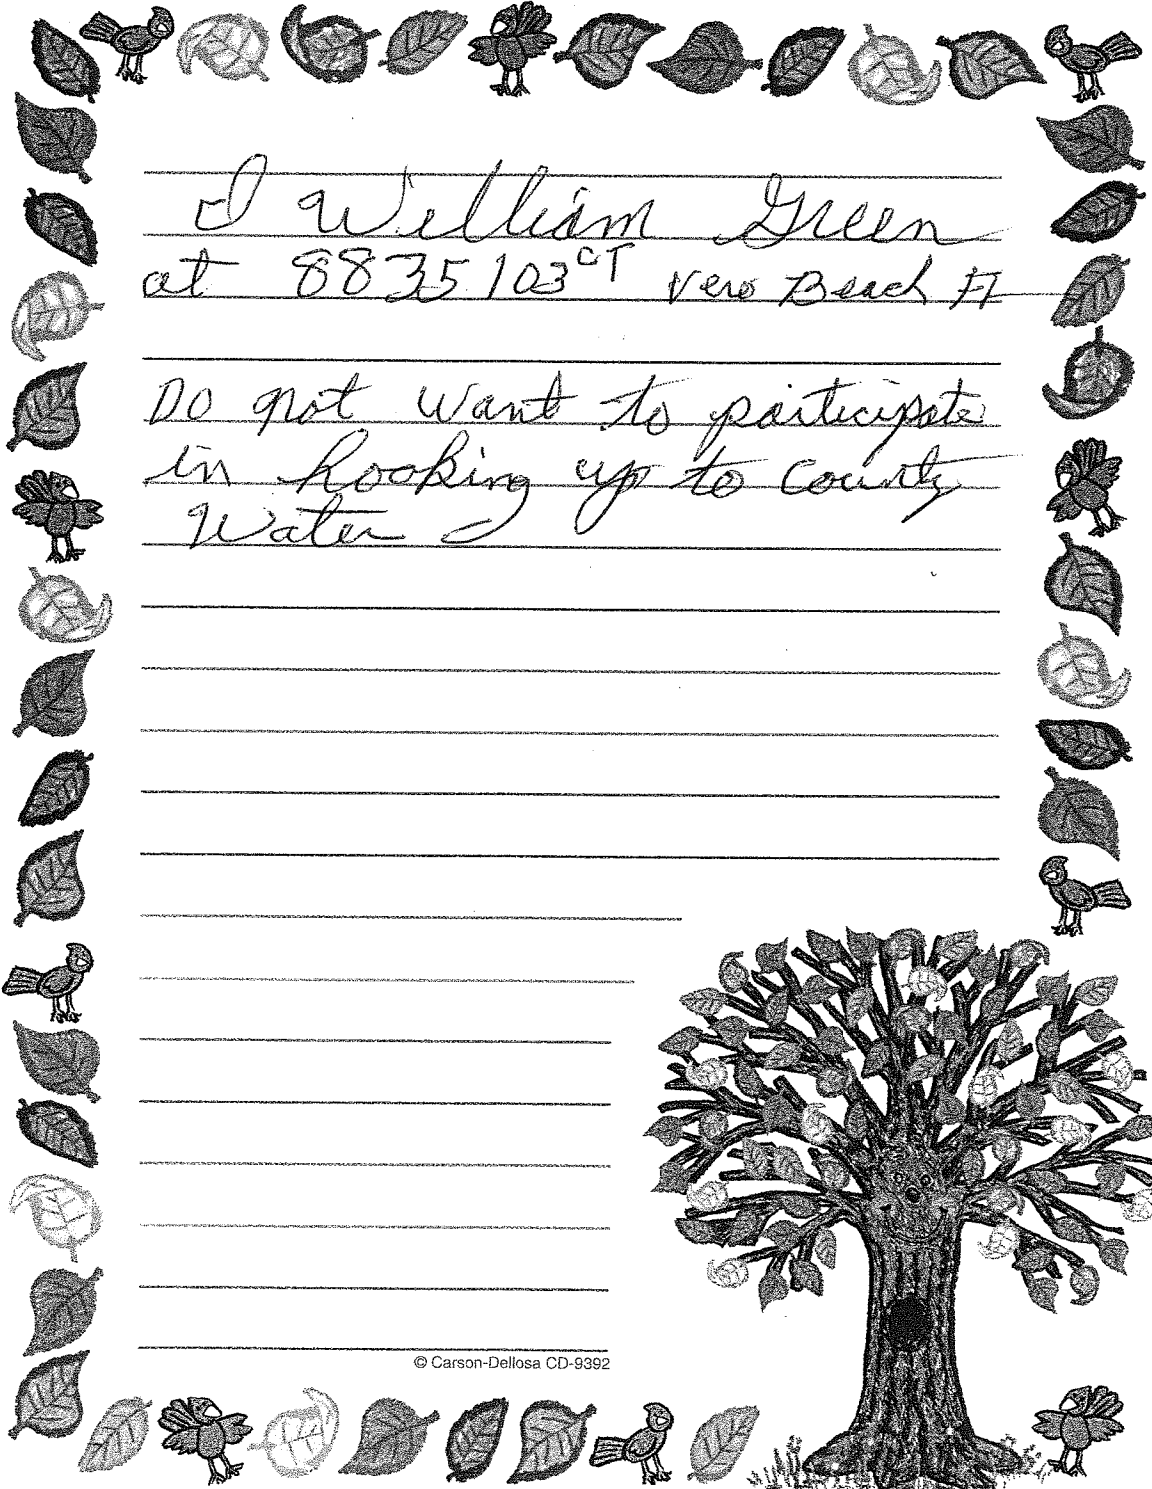 I William Green
at 8835 103 CT Vero Beach Fl
Do not want to participate
in hooking up to county
Water
© Carson-Dellosa CD-9392